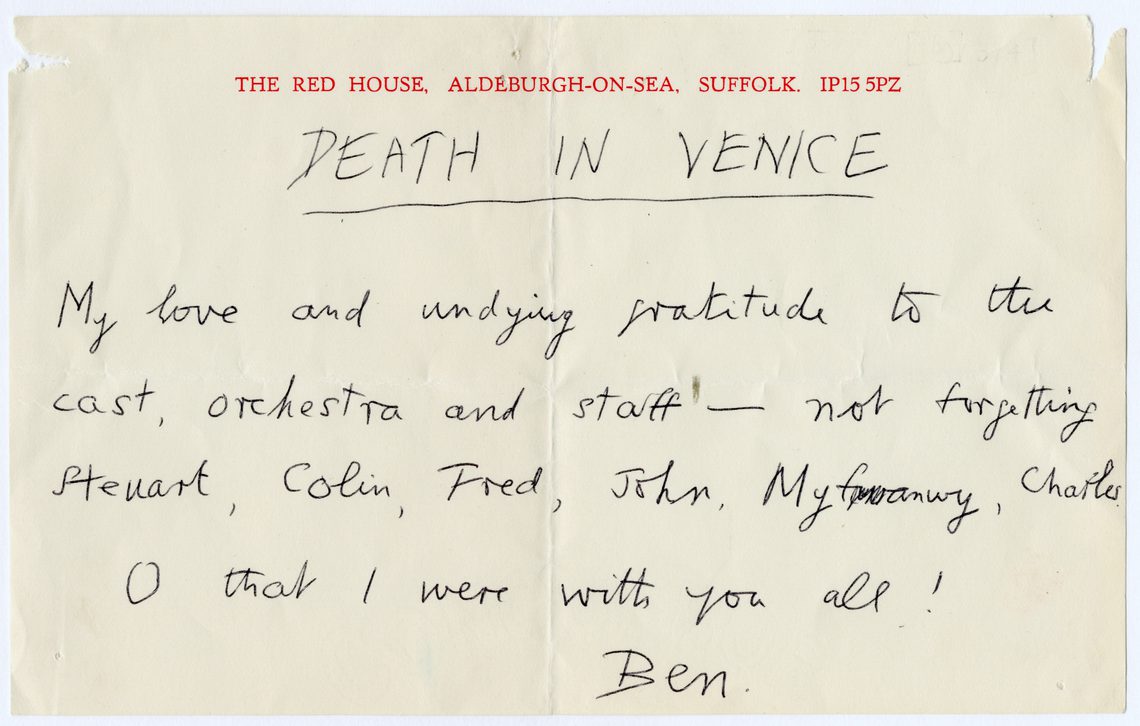 THE RED HOUSE, ALDEBURGH-ON-SEA, SUFFOLK. IP15 5PZ
DEATH IN VENICE
My love and undying gratitude to the
cast, orchestra and staff — not forgetting
Steuart, Colin, Fred, John, Myfanwy, Charles.
O that I were with you all!
Ben.